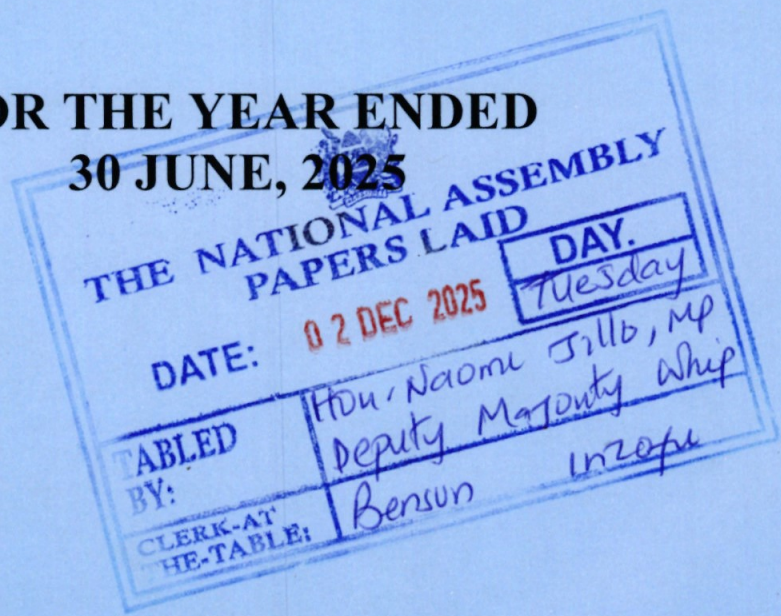 OR THE YEAR ENDED
30 JUNE, 2025
THE NATIONAL ASSEMBLY
PAPERS LAID
DAY.
Tuesday
DATE: 02 DEC 2025
TABLED BY:
Hon. Naomi Jillo, MP
Deputy Majority Whip
CLERK-AT THE-TABLE:
Benson